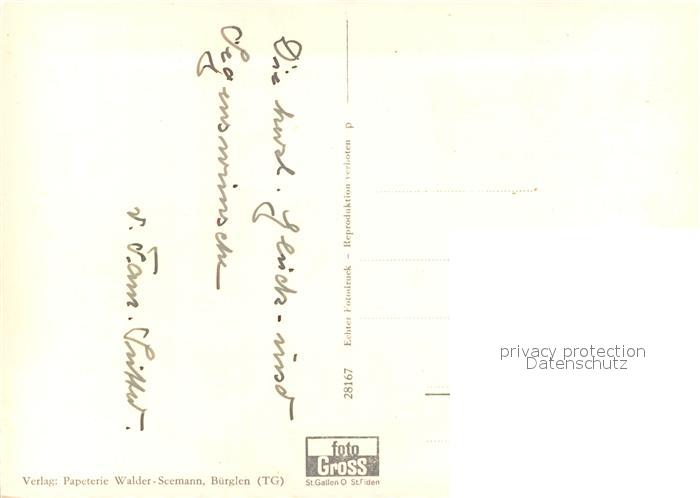 Die herzl. Glück- und
Segenswünsche
v. Fam.
28167 Echter Fotodruck - Reproduktion verboten p
Verlag: Papeterie Walder-Seemann, Bürglen (TG)
foto
GROSS
St.Gallen O St.Fiden
privacy protection
Datenschutz